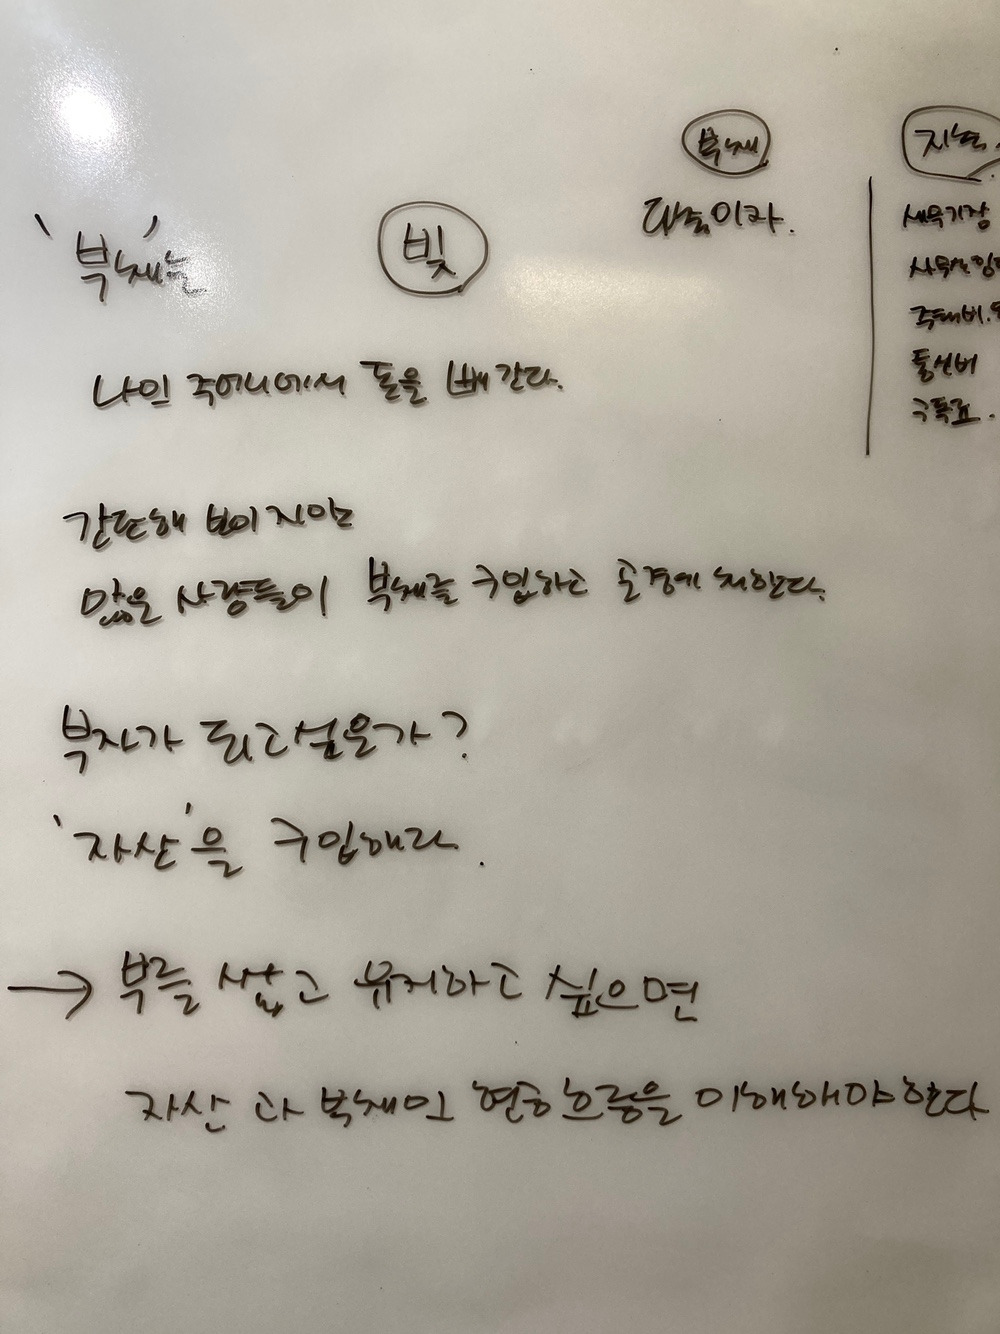 '부채'는
빚
나의 주머니에서 돈을 빼간다.
간단해 보이지만
많은 사람들이 부채를 구입하고 곤경에 처한다.
부자가 되고싶은가?
'자산'을 구입해라.
→ 부를 쌓고 유지하고 싶으면
자산과 부채의 현금흐름을 이해해야한다
부채
다음이라.
지출
세무기장
통신비
구독료.